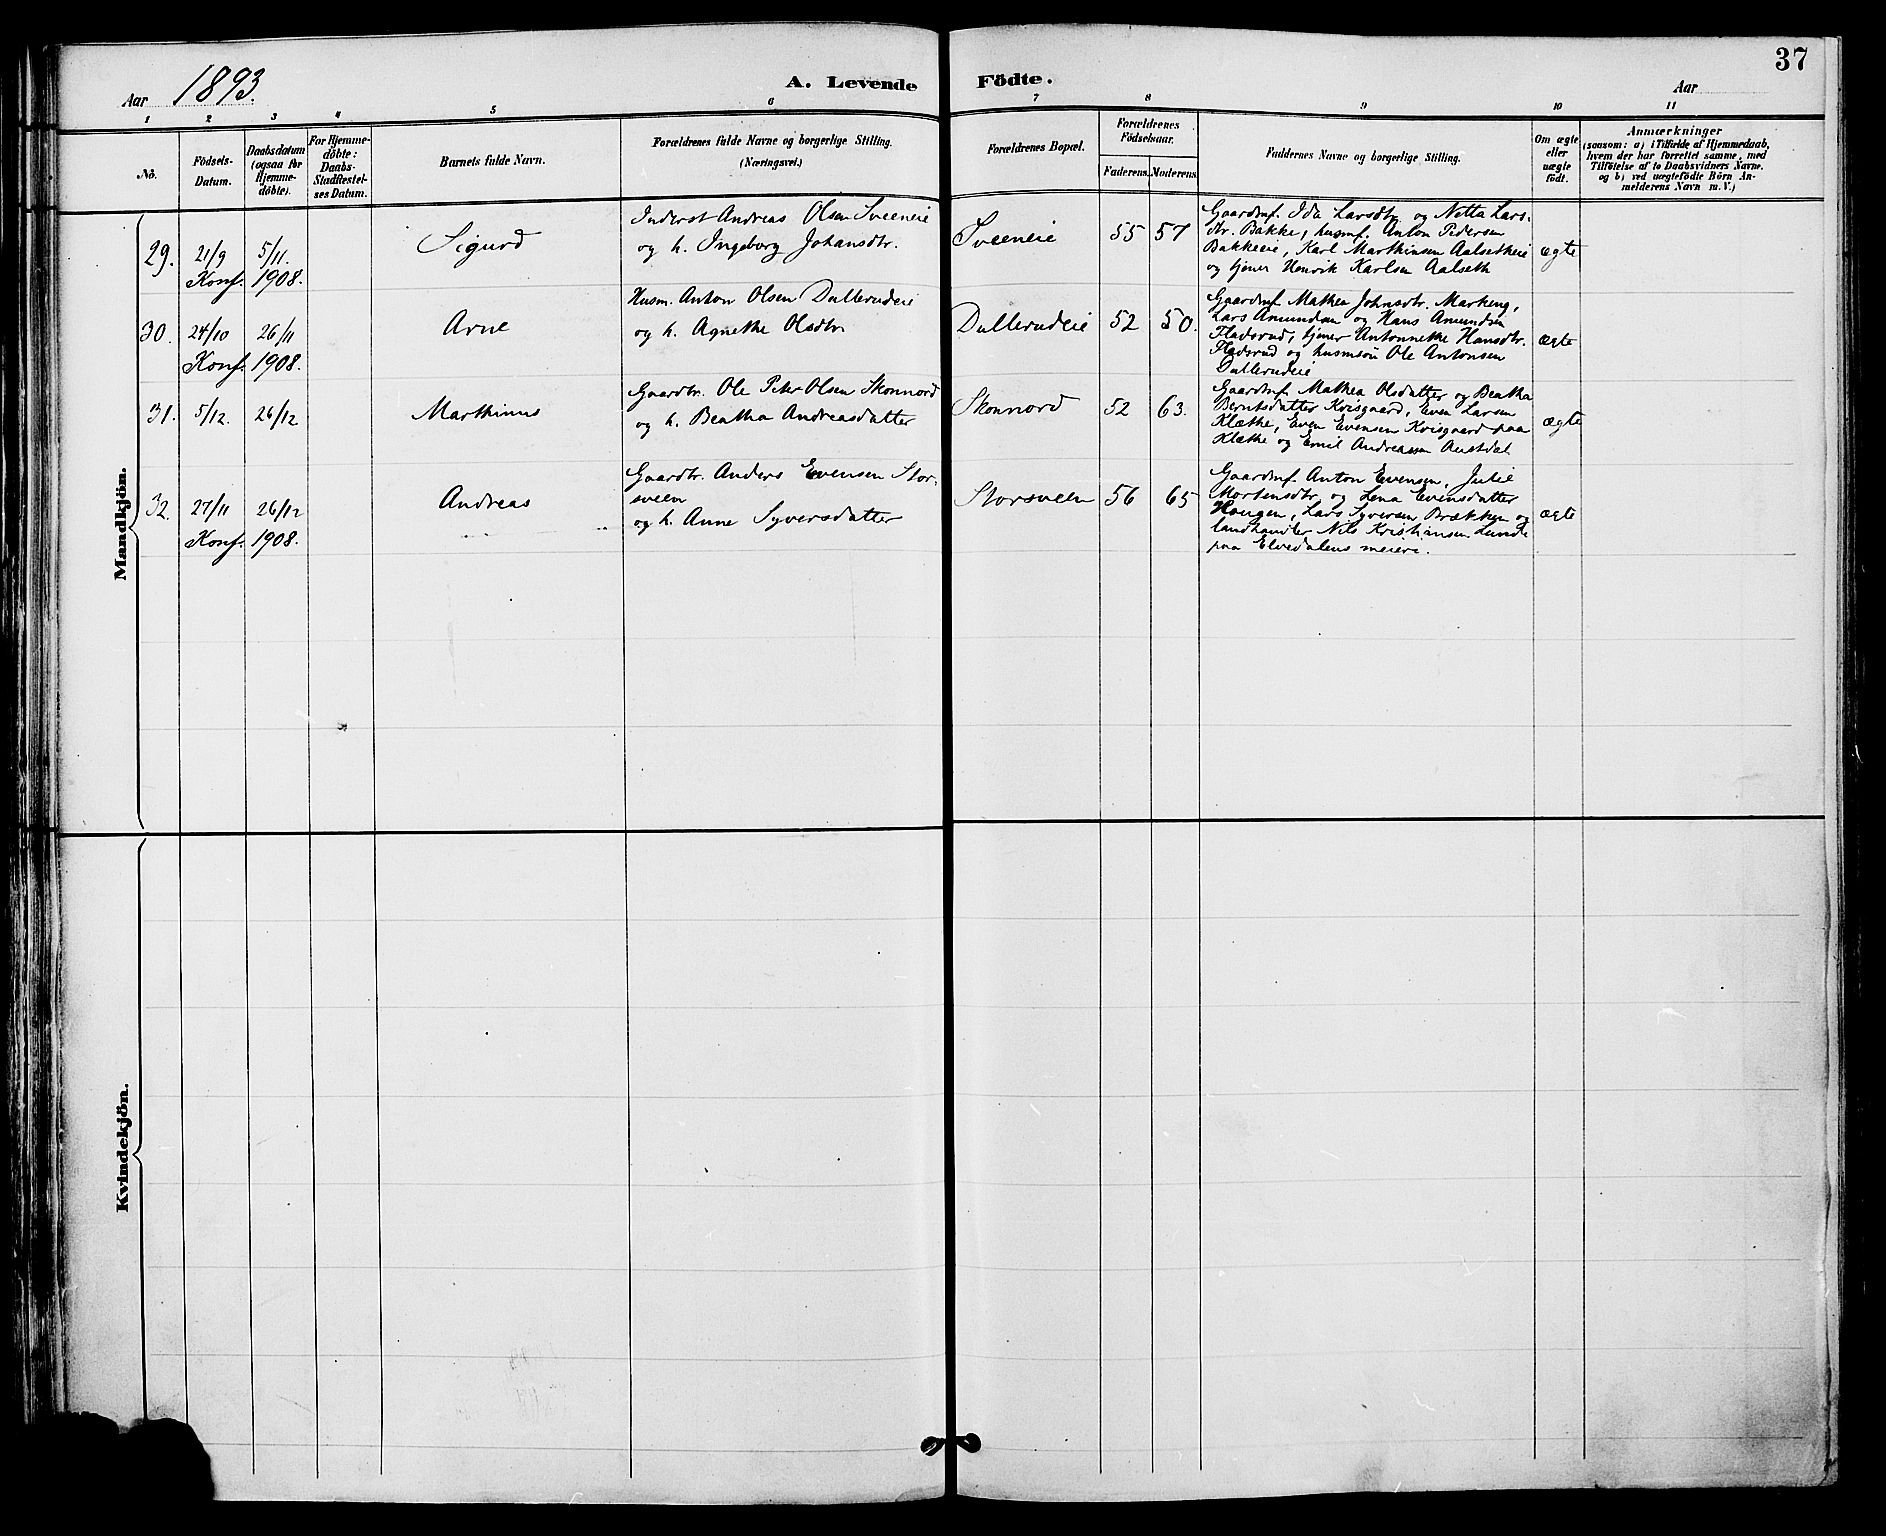 37
Aar 1893.
A. Levende Födte.
Aar
1 2 3 4 5 6 7 8 9 10 11
No.
Födsels-
Datum.
Daabsdatum
(ogsaa for
Hjemme-
döbte).
For Hjemme-
döbte:
Daabs-
Stadfæstel-
ses Datum.
Barnets fulde Navn.
Forældrenes fulde Navne og borgerlige Stilling.
(Næringsvei.)
Forældrenes Bopæl.
Forældrenes
Födselsaar.
Faderens. Moderens.
Faddernes Navne og borgerlige Stilling.
Om ægte
eller
uægte
födt.
Anmærkninger
(saasom: a) i Tilfælde af Hjemmedaab,
hvem der har forrettet samme, med
Tilföielse af to Daabsvidners Navne.
og b) ved uægtefödte Börn An-
melderens Navn m. V.)
Mandkjön.
29. 21/9 5/11.
Konf. 1908.
Sigurd
Inderst Andreas Olsen Sveeneie
og h. Ingeborg Johansdtr.
Sveeneie 55 57
Gaardmf. Ida Larsdtr. og Netta Lars-
dtr. Bakke, husmf. Anton Pedersen
Bakkeeie, Karl Marthinsen Aalsetheie
og tjener Henrik Karlsen Aalseth
ægte
30. 24/10 26/11
Konf. 1908.
Arne
Husm. Anton Olsen Dullerudeie
og h. Agnethe Olsdtr
Dullerudeie 52 50.
Gaardmf. Mathea Johnsdtr. Markeng,
Lars Amundsen og Hans Amundsen
Fladsrud, tjener Antonnethe Hansdtr.
Fladsrud og husmsön Ole Antonsen
Dullerudeie
ægte
31. 5/12. 26/12
Marthinus
Gaardbr. Ole Peter Olsen Skonnord
og h. Beatha Andreasdatter
Skonnord 52 63.
Gaardmf. Mathea Olsdatter og Beatha
Berntsdatter Kvisgaard, Even Larsen
Klæthe, Even Evensen Kvisgaard paa
Klæthe og Emil Andreassen Austdal
ægte
32. 27/11 26/12
Konf. 1908.
Andreas
Gaardbr. Anders Evensen Stor-
sveen
og h. Anne Syversdatter
Storsveen 56 65
Gaardmf. Anton Evensen, Julie
Mortensdtr, og Lena Evensdatter
Haugen, Lars Syversen Brækken og
landhandler Nils Kristiansen Lunde
paa Elvedalens meieri.
ægte
Kvindekjön.